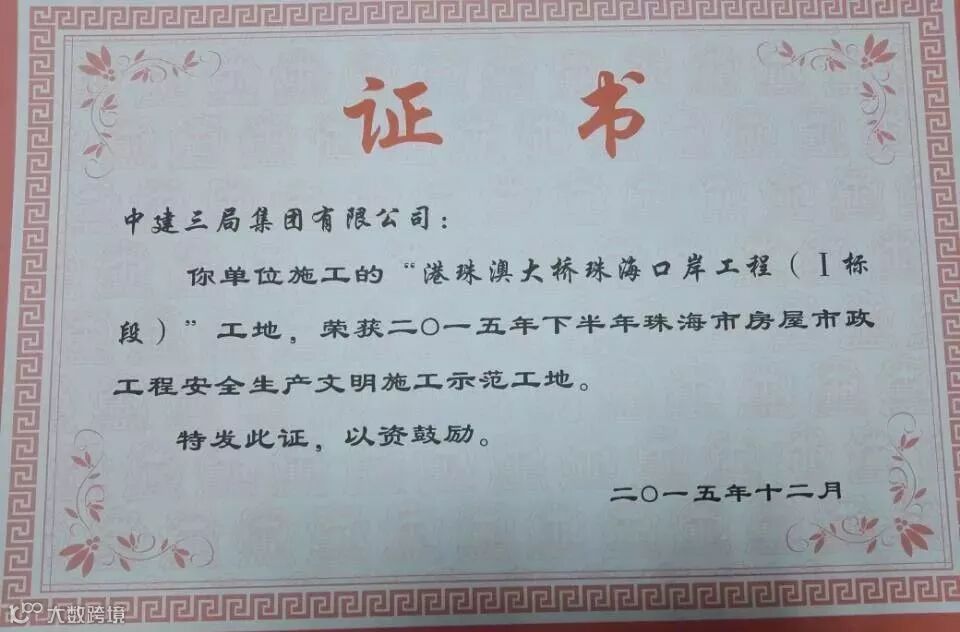 证书
中建三局集团有限公司：
你单位施工的“港珠澳大桥珠海口岸工程（Ⅰ标
段）”工地，荣获二〇一五年下半年珠海市房屋市政
工程安全生产文明施工示范工地。
特发此证，以资鼓励。
二〇一五年十二月
大数跨境